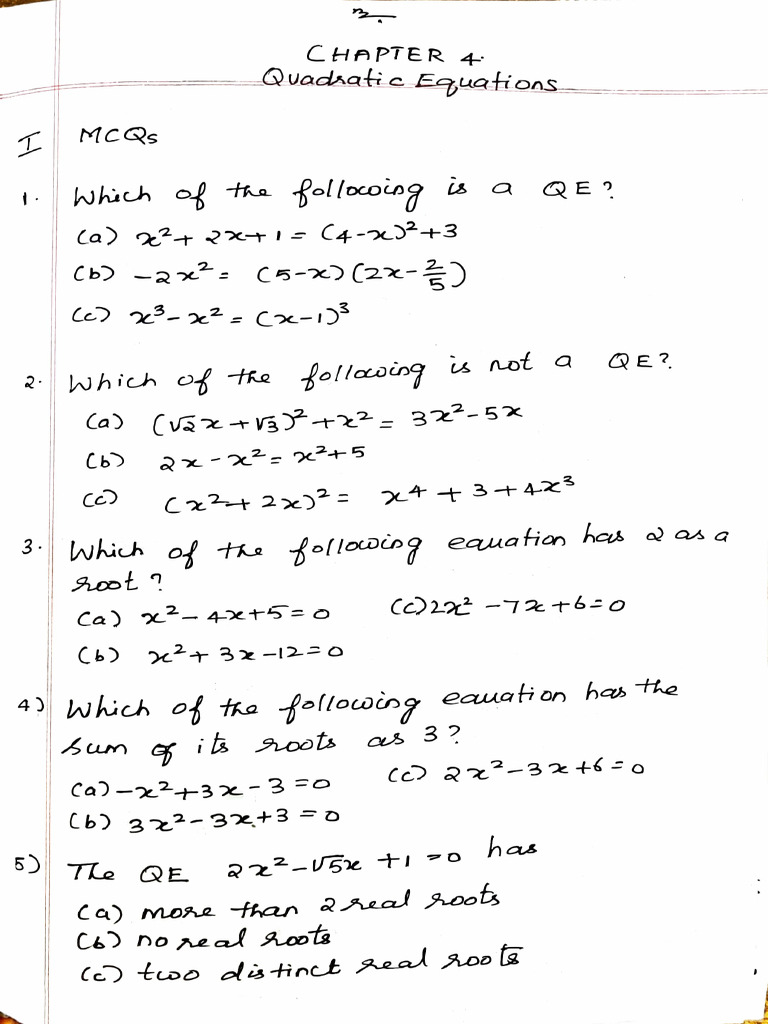 CHAPTER 4.
Quadratic Equations
I MCQs
1. Which of the following is a QE?
(a) x² + 2x + 1 = (4-x)² + 3
(b) -2x² = (5-x)(2x - 2/5)
(c) x³ - x² = (x-1)³
2. Which of the following is not a QE?
(a) (√2x + √3)² + x² = 3x² - 5x
(b) 2x - x² = x² + 5
(c) (x² + 2x)² = x⁴ + 3 + 4x³
3. Which of the following equation has 2 as a
root?
(a) x² - 4x + 5 = 0 (c) 2x² - 7x + 6 = 0
(b) x² + 3x - 12 = 0
4) Which of the following equation has the
sum of its roots as 3?
(a) -x² + 3x - 3 = 0 (c) 2x² - 3x + 6 = 0
(b) 3x² - 3x + 3 = 0
5) The QE 2x² - √5x + 1 = 0 has
(a) more than 2 real roots
(b) no real roots
(c) two distinct real roots